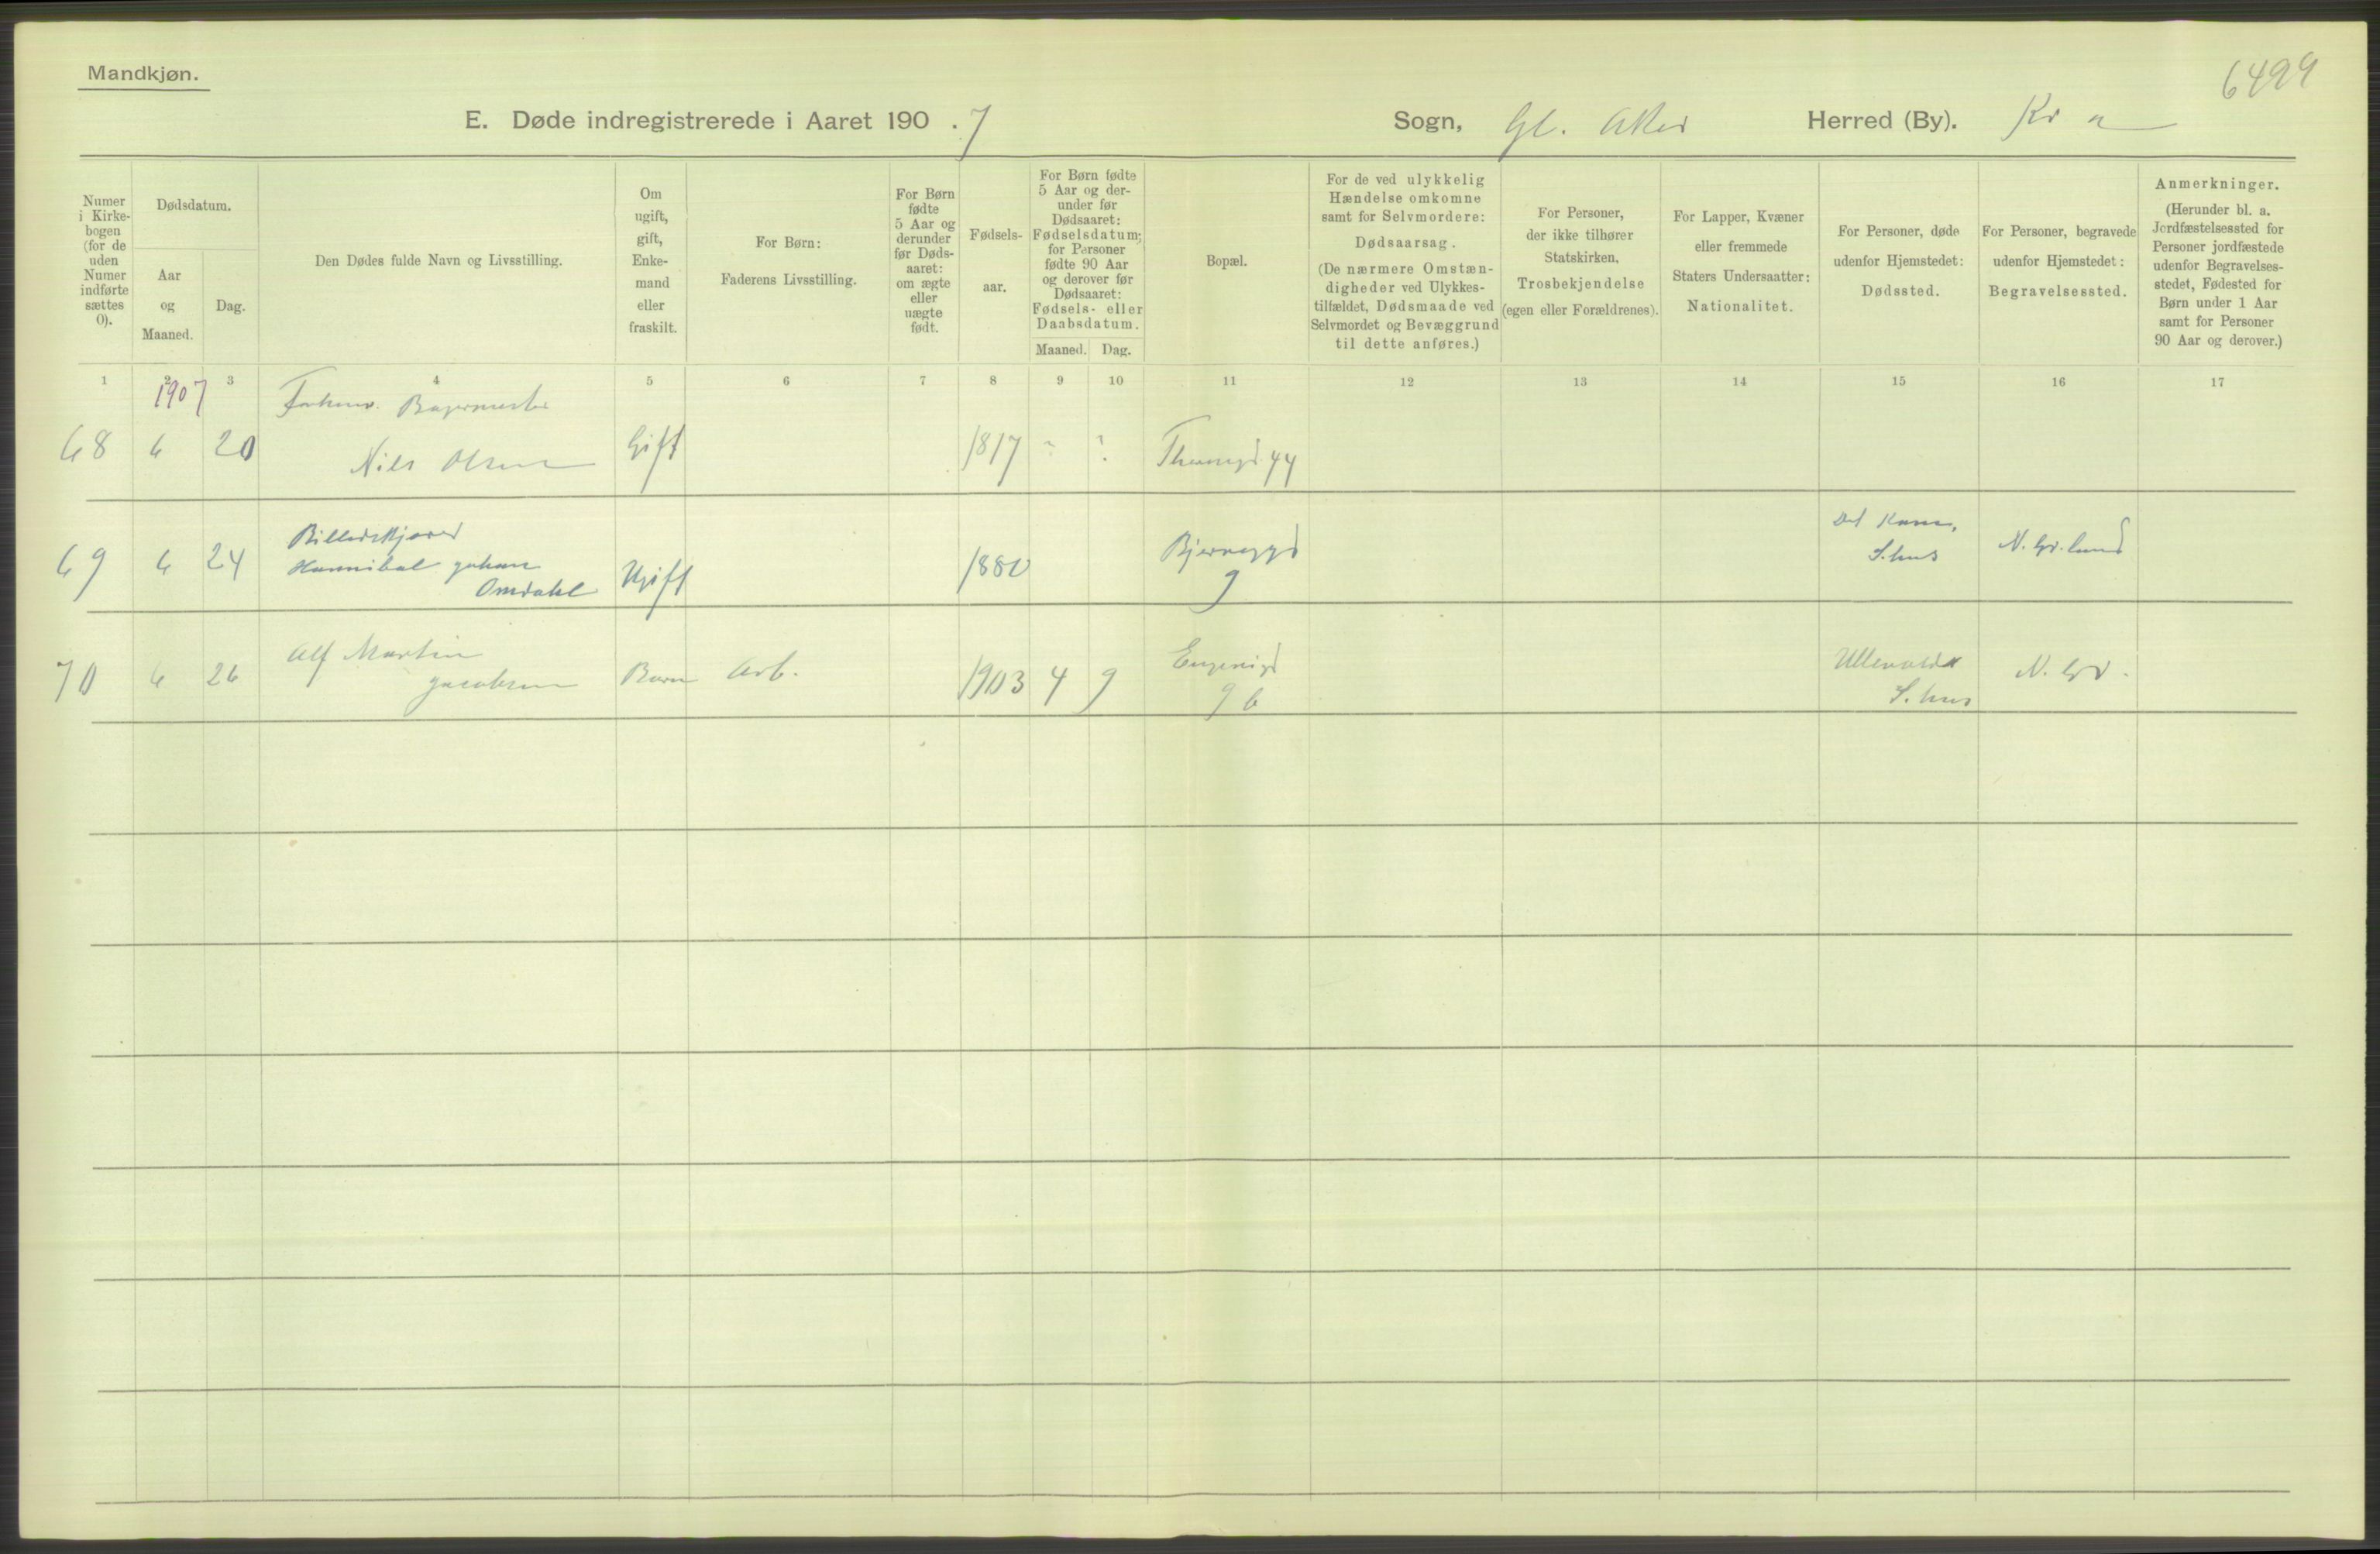 Mandkjøn.
6499
E. Døde indregistrerede i Aaret 190 . 7 Sogn, Gl. Aker Herred (By). Kr a
Numer i Kirkebogen (for de uden Numer indførte sættes 0).
Dødsdatum.
Aar og Maaned.
Dag.
Den Dødes fulde Navn og Livsstilling.
Om ugift, gift, Enkemand eller fraskilt.
For Børn:
Faderens Livsstilling.
For Børn fødte 5 Aar og derunder før Dødsaaret: om ægte eller uægte født.
Fødselsaar.
For Børn fødte 5 Aar og derunder før Dødsaaret: Fødselsdatum; for Personer fødte 90 Aar og derover før Dødsaaret: Fødsels- eller Daabsdatum.
Maaned. Dag.
Bopæl.
For de ved ulykkelig Hændelse omkomne samt for Selvmordere: Dødsaarsag.
(De nærmere Omstændigheder ved Ulykkestilfældet, Dødsmaade ved Selvmordet og Bevæggrund til dette anføres.)
For Personer, der ikke tilhører Statskirken, Trosbekjendelse (egen eller Forældrenes).
For Lapper, Kvæner eller fremmede Staters Undersaatter: Nationalitet.
For Personer, døde udenfor Hjemstedet: Dødssted.
For Personer, begravede udenfor Hjemstedet: Begravelsessted.
Anmerkninger.
(Herunder bl. a. Jordfæstelsessted for Personer jordfæstede udenfor Begravelsesstedet, Fødested for Børn under 1 Aar samt for Personer 90 Aar og derover.)
1 2 3 4 5 6 7 8 9 10 11 12 13 14 15 16 17
1907
Forhenv. Bagermester
68 6 20 Nils Olsen Gift 1817 ? ? 44
Billedskjærer
69 6 24 Hannibal Johan Omdahl Ugift 1880 Bjerregd 9 S.hus N. Gr. lund
70 6 26 Alf Martin Jacobsen Barn Arb. 1903 4 9 Eugenigd 9 b Ullevolds S.hus N. Gr.